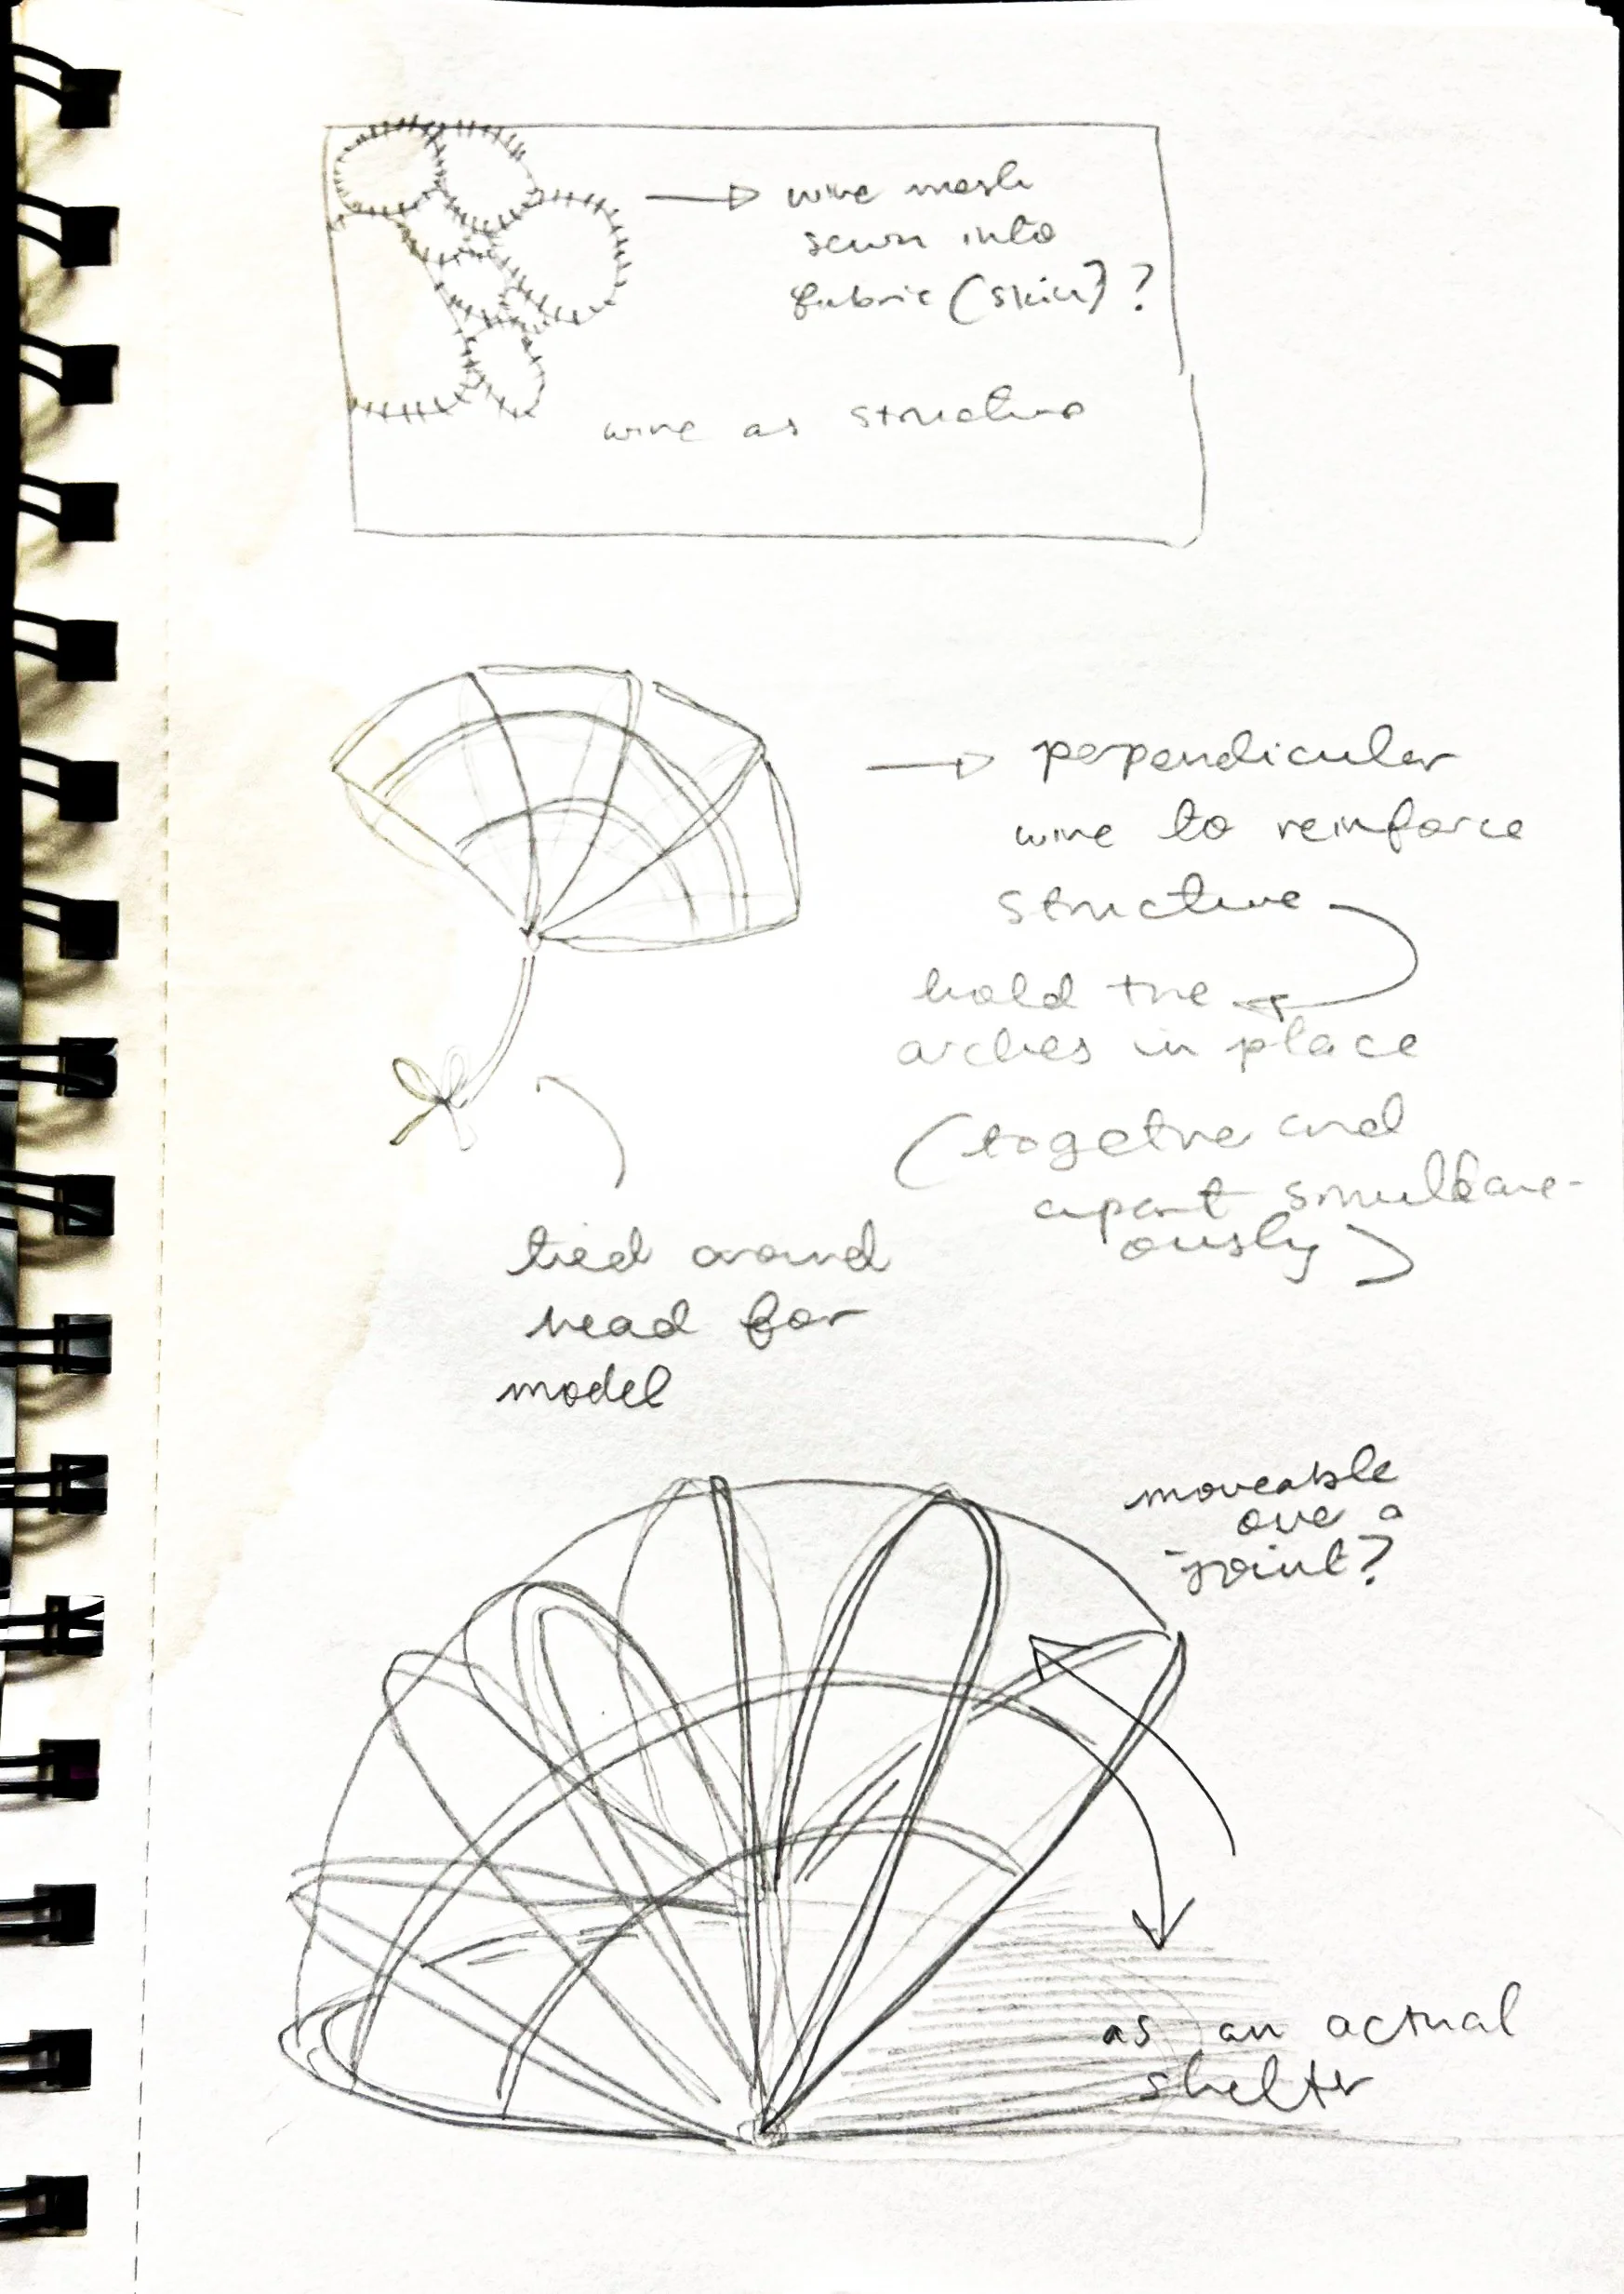 wire mesh
sewn into
fabric (skin)?
wire as structure
perpendicular
wire to reinforce
structure
hold the
arches in place
(together and
apart simultane-
ously)
tied around
head for
model
moveable
over a
joint?
as an actual
shelter